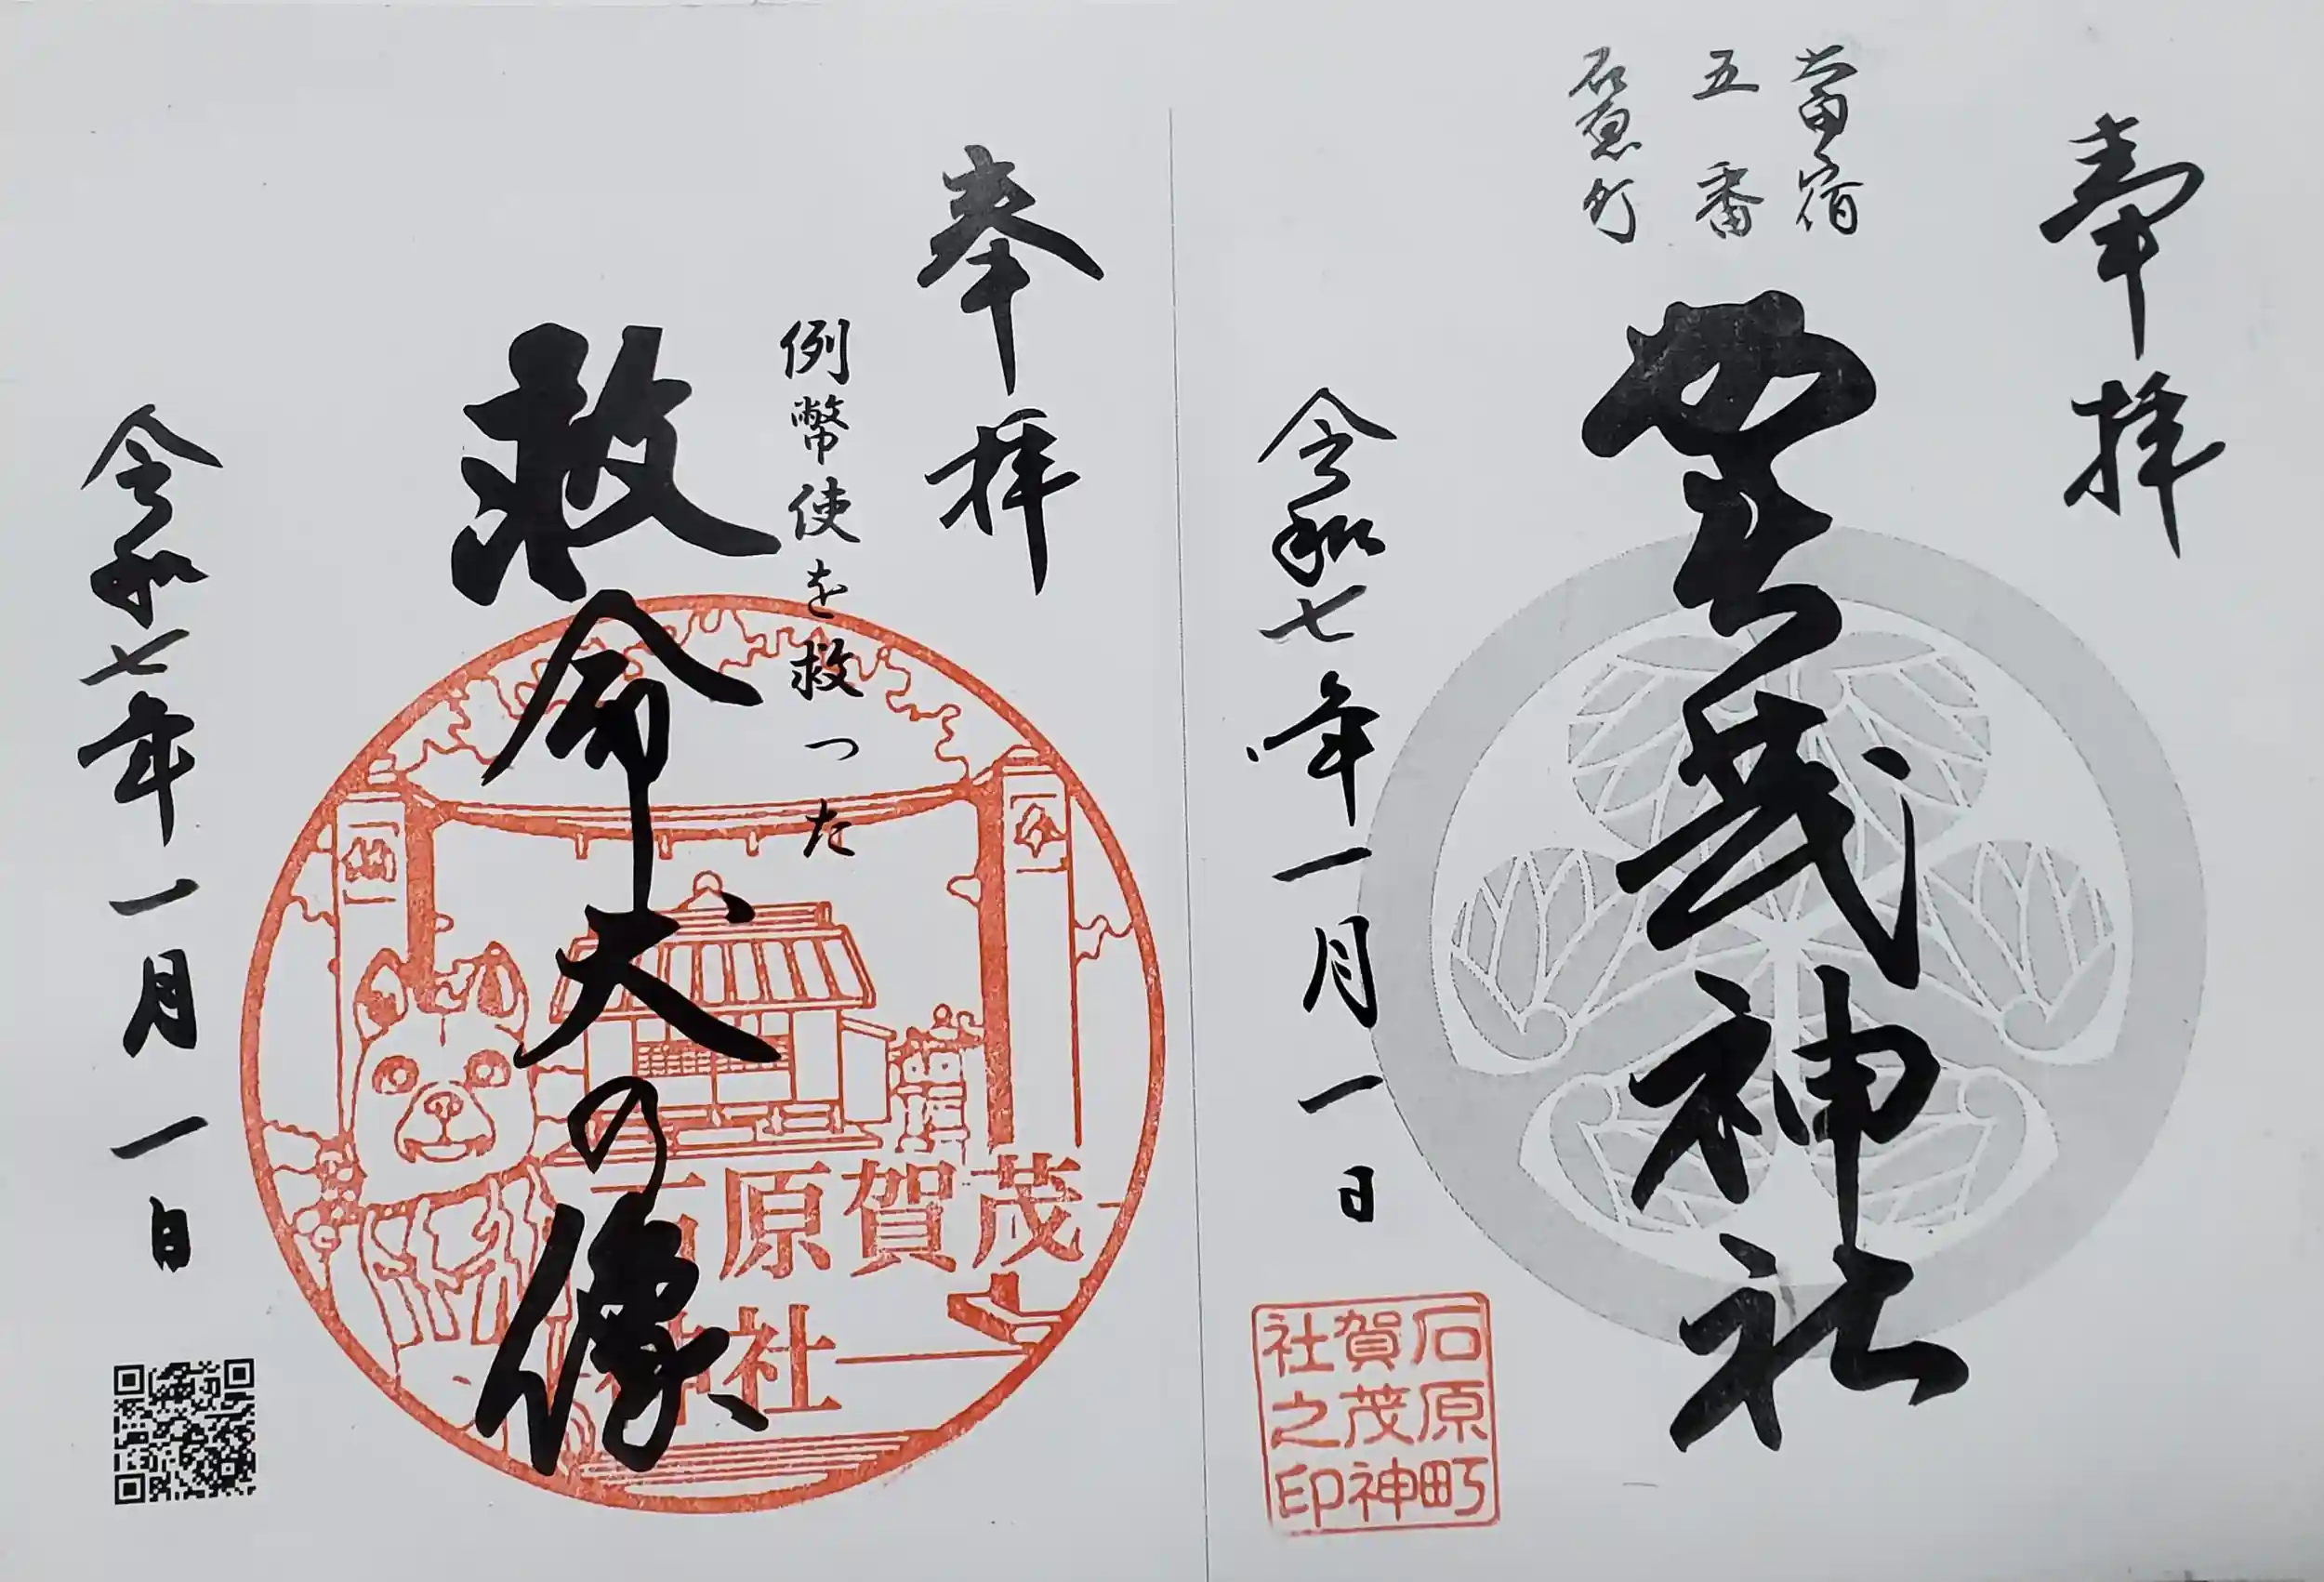 奉拝
當宿
五番
石原町
賀茂神社
令和七年一月一日
石原町
賀茂神
社之印
奉拝
例幣使を救った
救命犬の像
石原賀茂
神社
令和七年一月一日